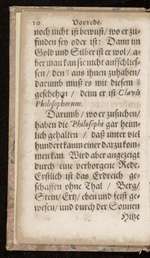 10 Vorrede.
noch nicht ist bewust / wo er zu-
finden sey oder ist: Dann im
Gold und Silber ist er wol / a-
ber man kan sie nicht auffschlies-
sen / den aus ihnen zuhaben /
darumb muß es mit diesem
geschehen / denn er ist Clavis
Philosophorum.
Darumb / wo er zusuchen /
haben die Philosophi gar heim-
lich gehalten / daß unter viel
hundert kaum einer darzu kom-
men kan. Wird aber angezeigt
durch eine verborgene Rede.
Erstlich ist das Erdreich ge-
schaffen ohne Thal / Berg /
Stein / Ertz / eben und feist ge-
wesen / und durch der Sonnen
Hitze